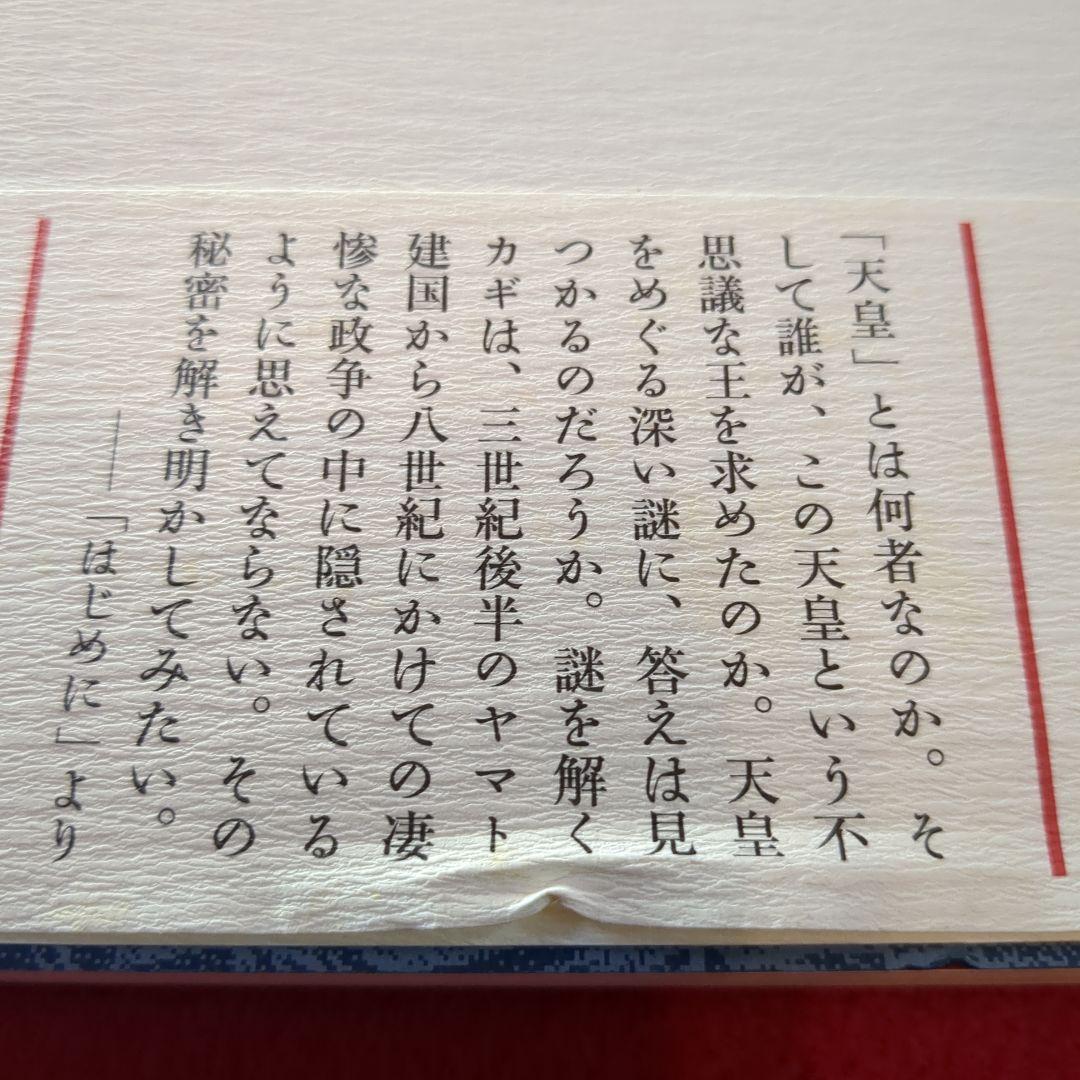 「天皇」とは何者なのか。そ
して誰が、この天皇という不
思議な王を求めたのか。天皇
をめぐる深い謎に、答えは見
つかるのだろうか。謎を解く
カギは、三世紀後半のヤマト
建国から八世紀にかけての凄
惨な政争の中に隠されている
ように思えてならない。その
秘密を解き明かしてみたい。
――「はじめに」より